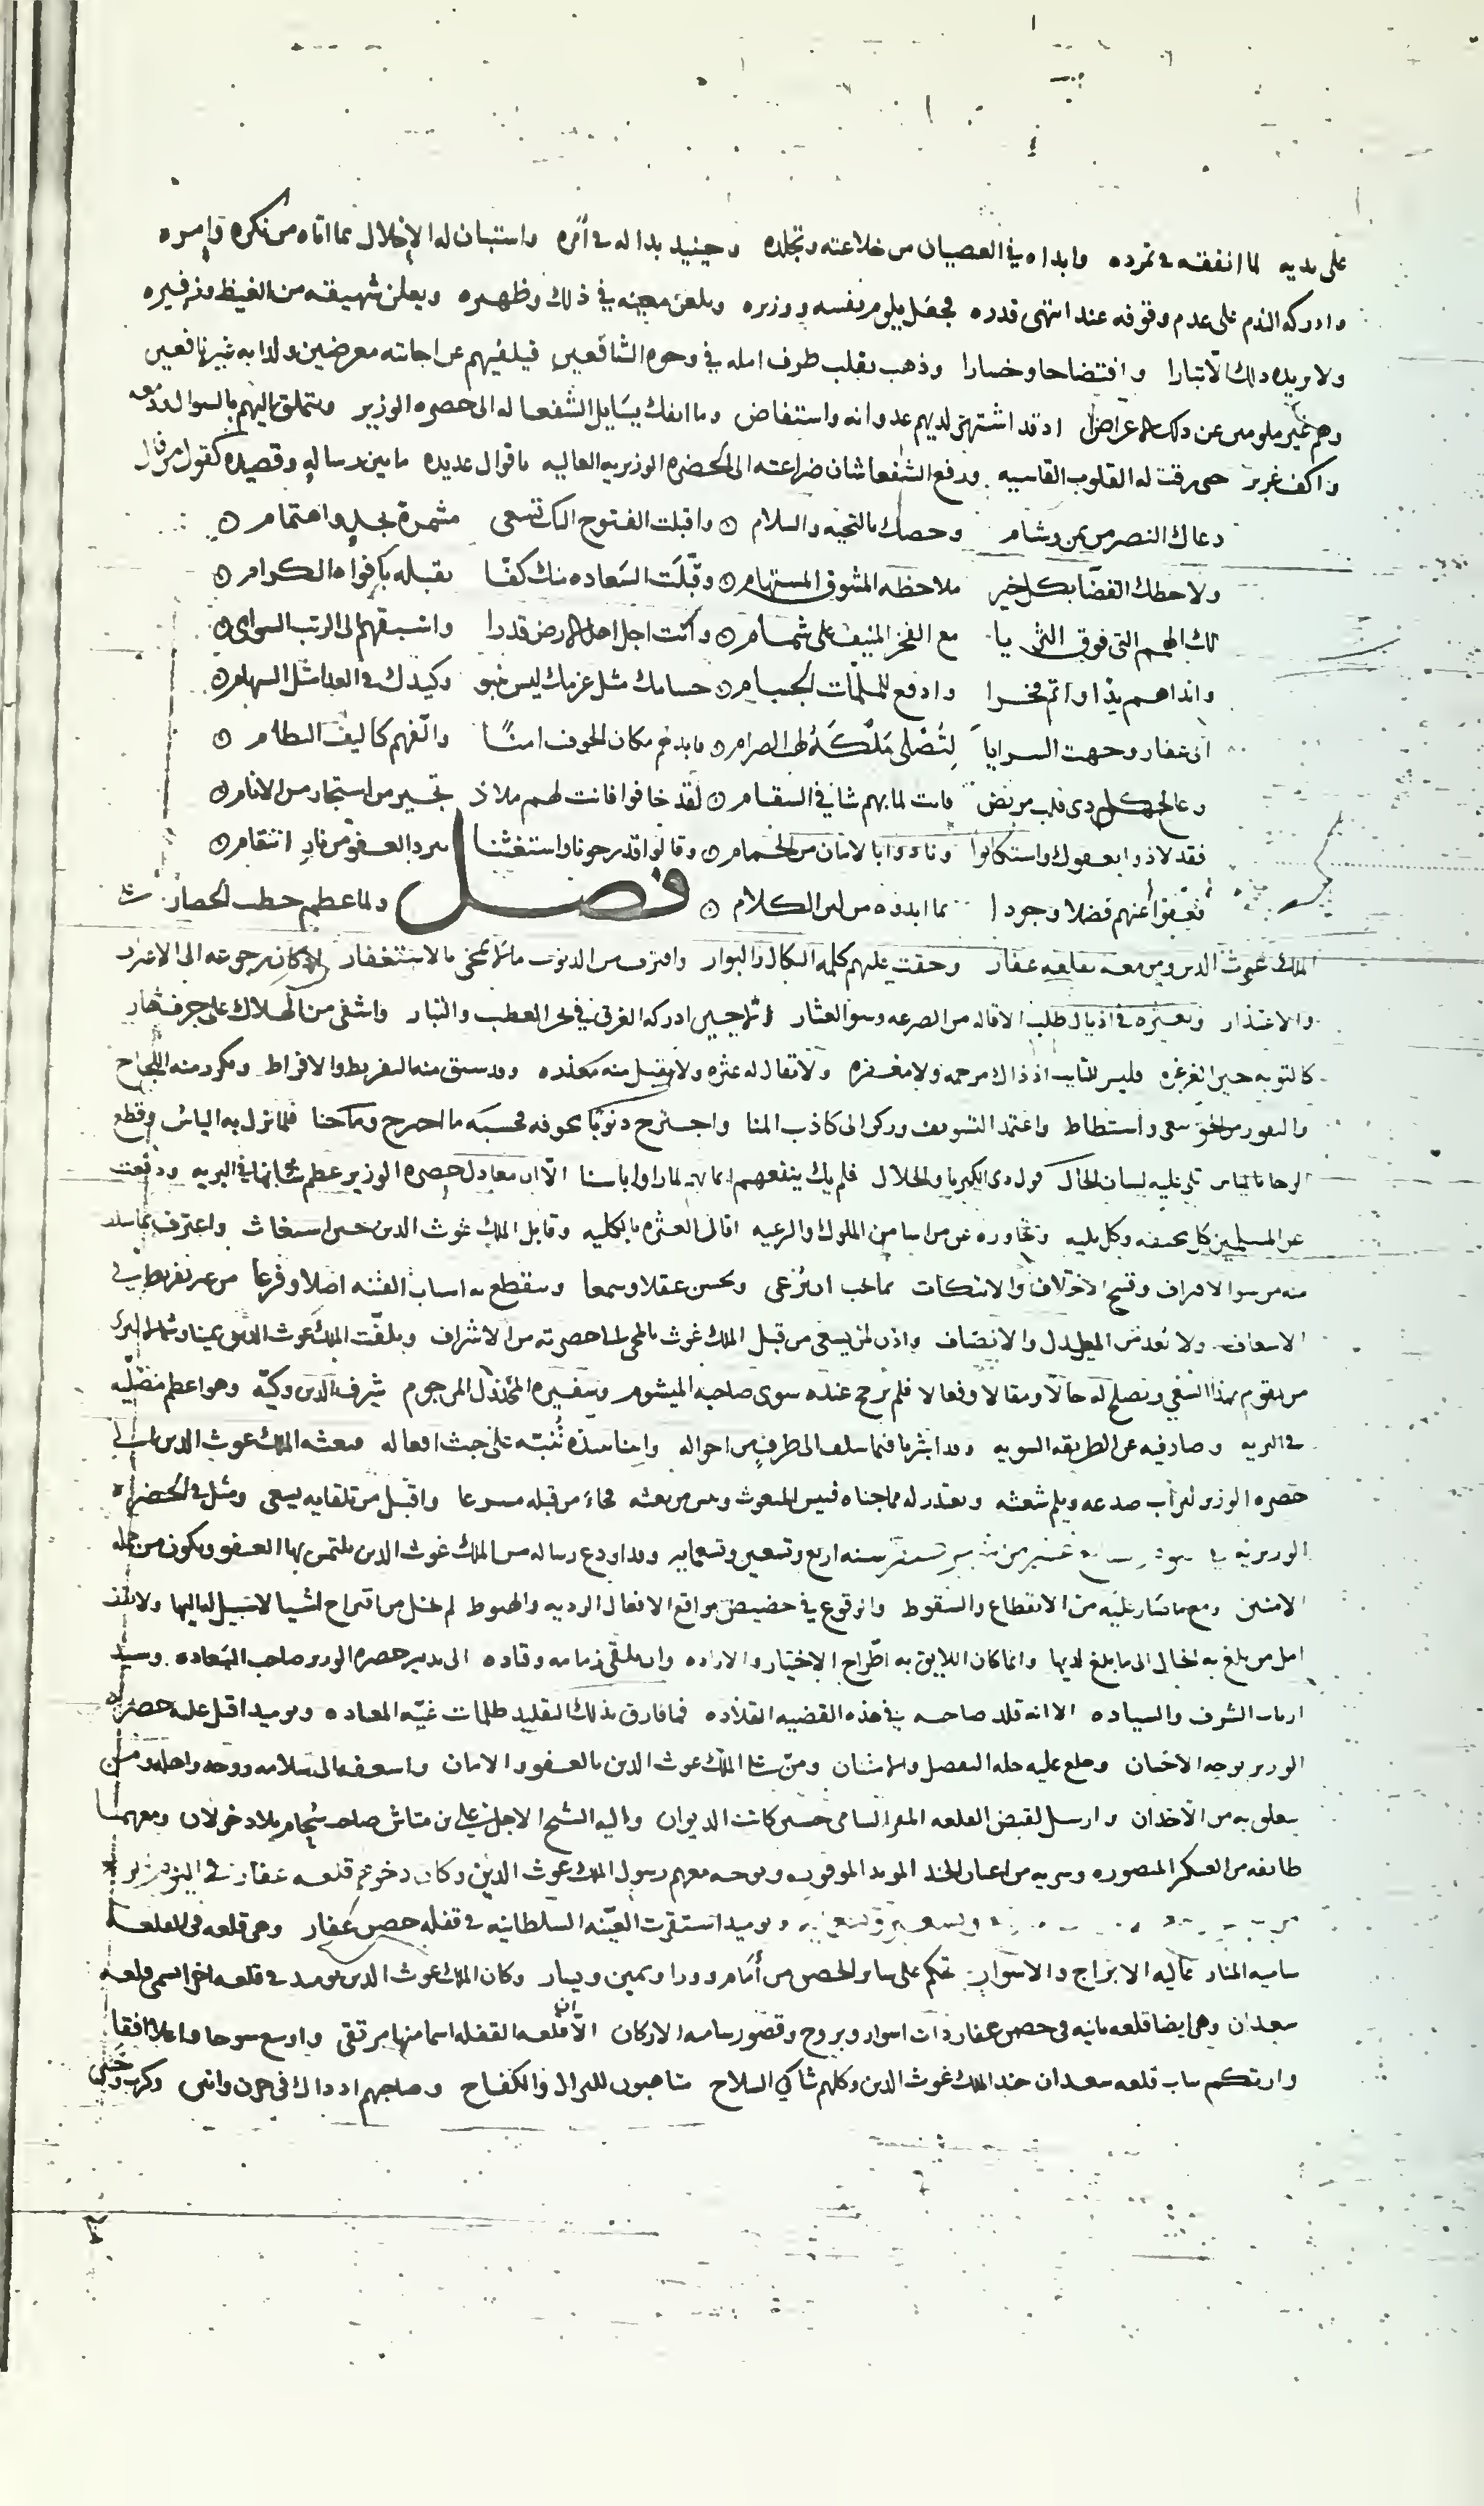 على يديه لما انفقه في تمرده وابداه في العصيان من خلاعته وتجلده وحينيد بدا له في أمره واستبان له الاخلال بما اتاه من نكره وإمره
وادركه الندم على عدم وقوفه عند انتهى قدره فجعل يلوم نفسه ووزيره ويلعن معينه في ذلك وظهيره ويعلن شهيقه من الغيظ وزفيره
ولا يزيده ذلك الا تبارا وافتضاحا وخسارا وذهب يقلب طرف امله في وجوه الشافعين فيلفيهم عن اجابته معرضين ولدابه غير نافعين
وهم غير ملومين عن ذلك الاعراض اذ قد اشتهر لديهم عدوانه واستفاض وما انفك يسايل الشفعا له الى حضره الوزير ويتملق اليهم بالسوال ودمعه
واكف غزير حتى رقت له القلوب القاسيه ورفع الشفعا شان ضراعته الى الحضره الوزيريه العاليه باقوال عديده ما بين رساله وقصيده كقول من قال
دعاك النصر من يمن وشام وحصك بالتحيه والسلام ۞ واقبلت الفتوح اليك تسعى مشمرة بجد واهتمام ۞
ولاحظك القضا بكل خير ملاحظه المشوق المستهام ۞ وقبلت السعاده منك كفا يقبله بافواه الكرام ۞
لك الهمم التى فوق الثريا مع الفخر المنيف على شمام ۞ وانت اجل اهل الارض قدرا واسبقهم الى الرتب السوامى ۞
وانداهم يدا واتم فخرا وادفع للملمات الجسام ۞ حسامك مثل عزمك ليس ينبو وكيدك في العدا مثل السهام ۞
الى عفار وجهت السرايا لتصلى ملكه طى الصرام ۞ فابدلهم مكان الخوف امنا والفهم كاليف النظام ۞
وعالج كل ذى قلب مريض فانت لما بهم شافي السقام ۞ لقد خافوا فانت لهم ملاذ تجير من استجار من الانام ۞
فقد لاذوا بعفوك واستكانوا ونادوا بالامان من الحمام ۞ وقالوا قد رجونا واستغثنا ببرد العفو من نار انتقام ۞
فعفوا عنهم فضلا وجودا بما ابدوه من لين الكلام ۞ فصل ولما عظم خطب الحصار على
الملك غوث الدين ومن معه بقلعه عفار وحقت عليهم كلمه النكال والبوار واقترف من الذنوب ما لا يمحى بالاستغفار لو كان رجوعه الى الاعتراف
والاعتذار وتعثره في اذيال طلب الاقاله من الصرعه وسو العثار لا حين ادركه الغرق في بحر العطب والتبار واشفى من الهلاك على جرف هار
كالتوبه حين الغرغره فليس للتايب اذ ذاك مرحمه ولا مغفره ولا تقال له عثره ولا يقبل منه معذره وقد سبق منه التفريط والافراط وتكرر منه اللجاج
والنفور من الحق سعى واستطاط واعتمد التسويف وركن الى كاذب المنا واجترح ذنوبا تحوفه فحسبه ما اجترح وما جنا فلما نزل به الياس وقطع
الرجا بالباس تلى عليه لسان الحال قول ذى الكبريا والجلال فلم يك ينفعهم ايمانهم لما راوا باسنا الا ان معادل حضره الوزير عظم شانها في البريه ودفعت
عن المسلمين كل محنه وكل بليه وتجاوزه عن من اسا من الملوك والرعيه اقال العثره بالكليه وقابل الملك غوث الدين حين استغاث واعترف بما سلف
منه من سو الاقتراف وقبيح الاختلاف والانتكاث بما يجب ان يرعى ويحسن عقلا وسمعا وينقطع به اسباب الفتنه اصلا وفرعا من غير تفريط في
الاسعاف ولا بعد عن العدل والانصاف واذن لمن يسعى من قبل الملك غوث بالمجى لما حضرته من الاشراف وتلفت الملك غوث الدين يمينا وشمالا ليرى
من يقوم بهذا السعى ويصلح له حالا ومقالا وفعالا فلم يرجح عنده سوى صاحبه الميشوم وسفيره المخذول المرجوم شرف الدين وكيه وهو اعظم مضليه
في البريه وصادفيه عن الطريقه السويه وقد اشرنا فيما سلف الى طرف من احواله واحنا بنبذه تنبه على خبث افعاله فبعثه الملك غوث الدين الى
حضره الوزير ليراب صدعه ويلم شعثه ويعتذر له مما جناه فبيس المبعوث وبيس من بعثه فجاء من قبله مسرعا واقبل من تلقايه يسعى ومثل في الحضره
الوزيريه في سنه اربع وتسعين وتسعمايه وقد اودع رساله من الملك غوث الدين يلتمس بها العفو ويكون من جمله
الامنين ومع ما شار عليه من الانقطاع والسقوط والوقوع في حضيض مواقع الافعال الرديه والهبوط لم يخل من اقتراح اشيا لا سبيل له اليها ولا ينفذ
امل من بلغ به الحال الى ما بلغ لديها وانما كان اللايق به اطراح الاختيار والاراده وان يلقى زمامه وقاده الى يد حضره الوزير صاحب السعاده وسيد
ارباب الشرف والسياده الا انه قلد صاحبه في هذه القضيه القلاده فما فارق بذلك التقليد ظلمات غيه المعتاده ويوميد اقبل عليه حضره
الوزير بوجه الاحسان وخلع عليه حله التفضل والامتنان ومن على الملك غوث الدين بالعفو والامان واسعفه الى سلامه روحه واهله ومن
يعلق به من الاخدان وارسل لقبض القلعه المقر السامى حسن كاتب الديوان واليه الشيخ الاجل علي بن متاش صاحب شجاع بلاد خولان ومعهما
طايفه من العسكر المنصوره وسريه من اعيان الجند المويد الموفوره وتوجه معهم رسول الملك غوث الدين وكان دخولهم قلعه عفار في اليوم
ويوميد استقرت العينه السلطانيه في قفله حصن عفار وهى قلعه في القلعه
ساميه المنار عاليه الابراج والاسوار تحكم على ساير الحصن من أمام وورا ويمين ويسار وكان الملك غوث الدين يوميد في قلعه اخرى تسمى قلعه
سعدان وهى ايضا قلعه مانيه في حصن عفار ذات اسوار وبروج وقصور ساميه الاركان الا ان قلعه القفله اسما منها مرتقى واوسع سوحا واعلا افقا
وارتكم بباب قلعه سعدان جند الملك غوث الدين وكلهم شاكي السلاح متاهبون للنزال والكفاح وصاحبهم اذ ذاك في حزن واسى وكرب وخنق